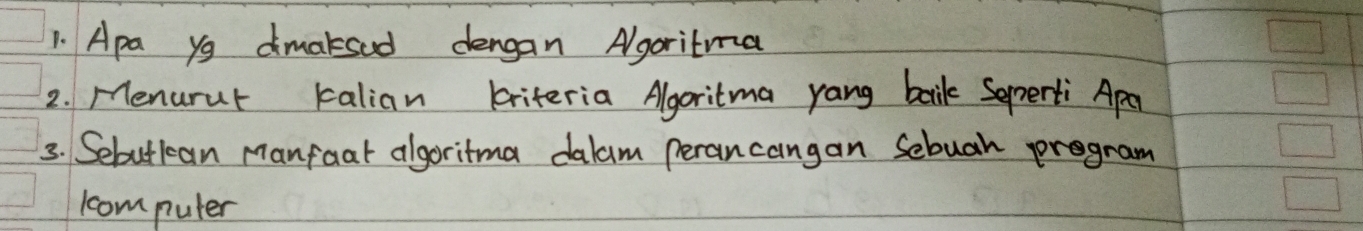 1. Apa yg dmaksud dengan Algoritma
2. Menurut kalian kriteria Algoritma yang baik Seperti Apa
3. Sebutkan Manfaat algoritma dalam perancangan sebuah program
komputer